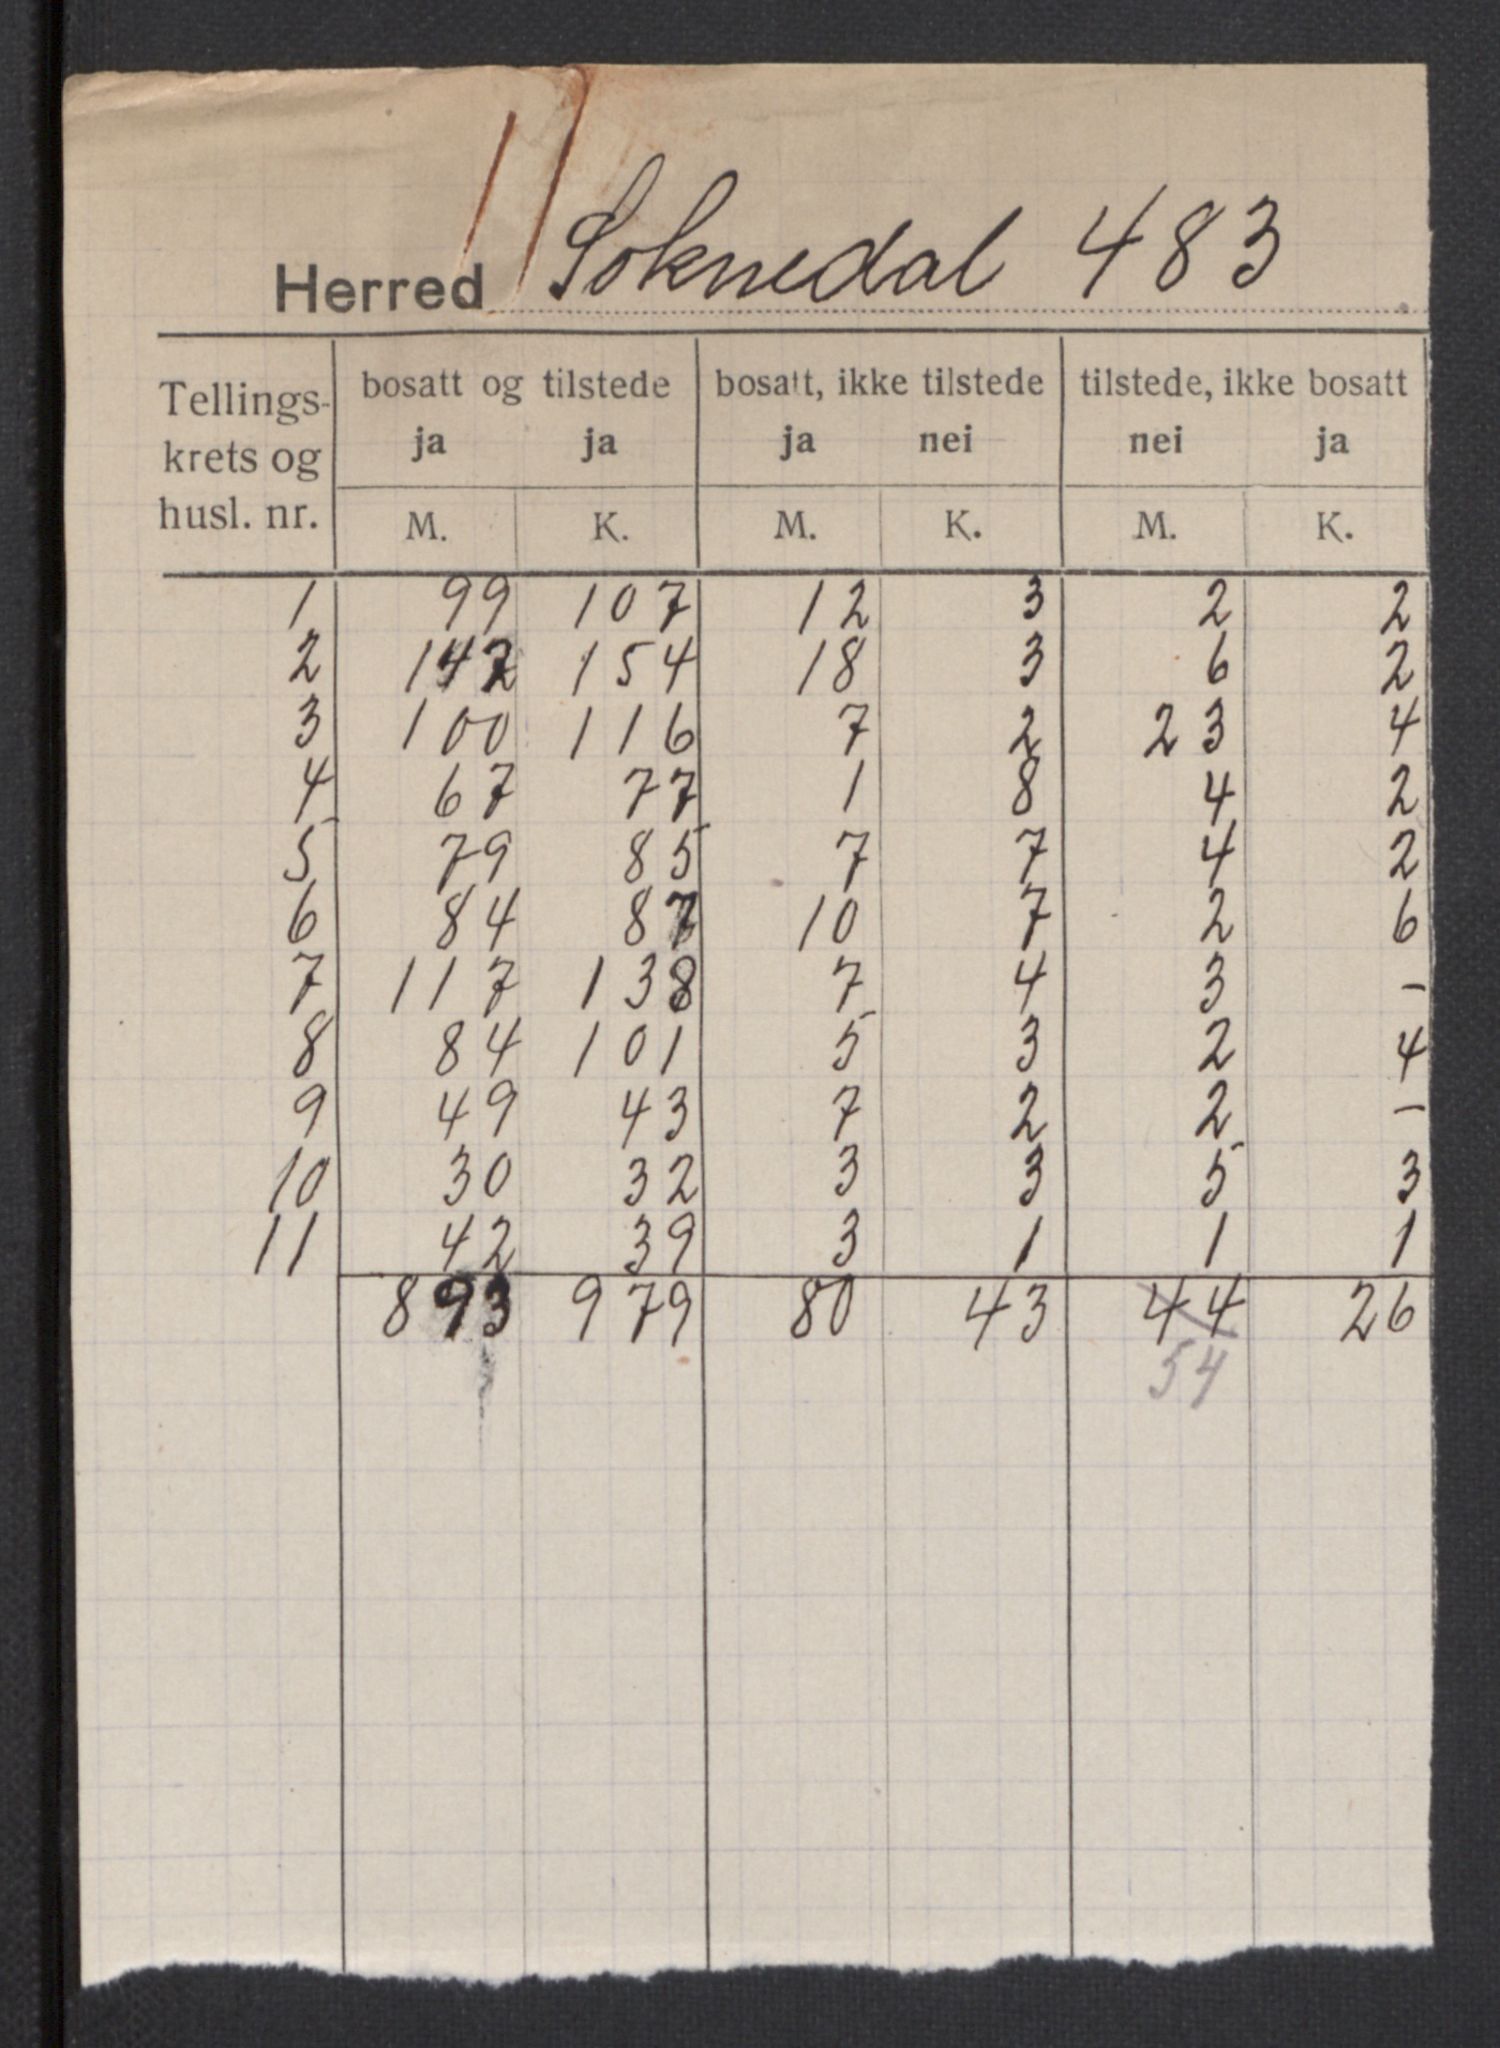 Herred Soknedal 483
Tellings- bosatt og tilstede bosatt, ikke tilstede tilstede, ikke bosatt
krets og ja ja ja nei nei ja
husl. nr. M. K. M. K. M. K.
1 99 107 12 3 2 2
2 142 154 18 3 6 2
3 100 116 7 2 23 4
4 67 77 1 8 4 2
5 79 85 7 7 4 2
6 84 87 10 7 2 6
7 117 138 7 4 3 -
8 84 101 5 3 2 4
9 49 43 7 2 2 -
10 30 32 3 3 5 3
11 42 39 3 1 1 1
893 979 80 43 44 26
54